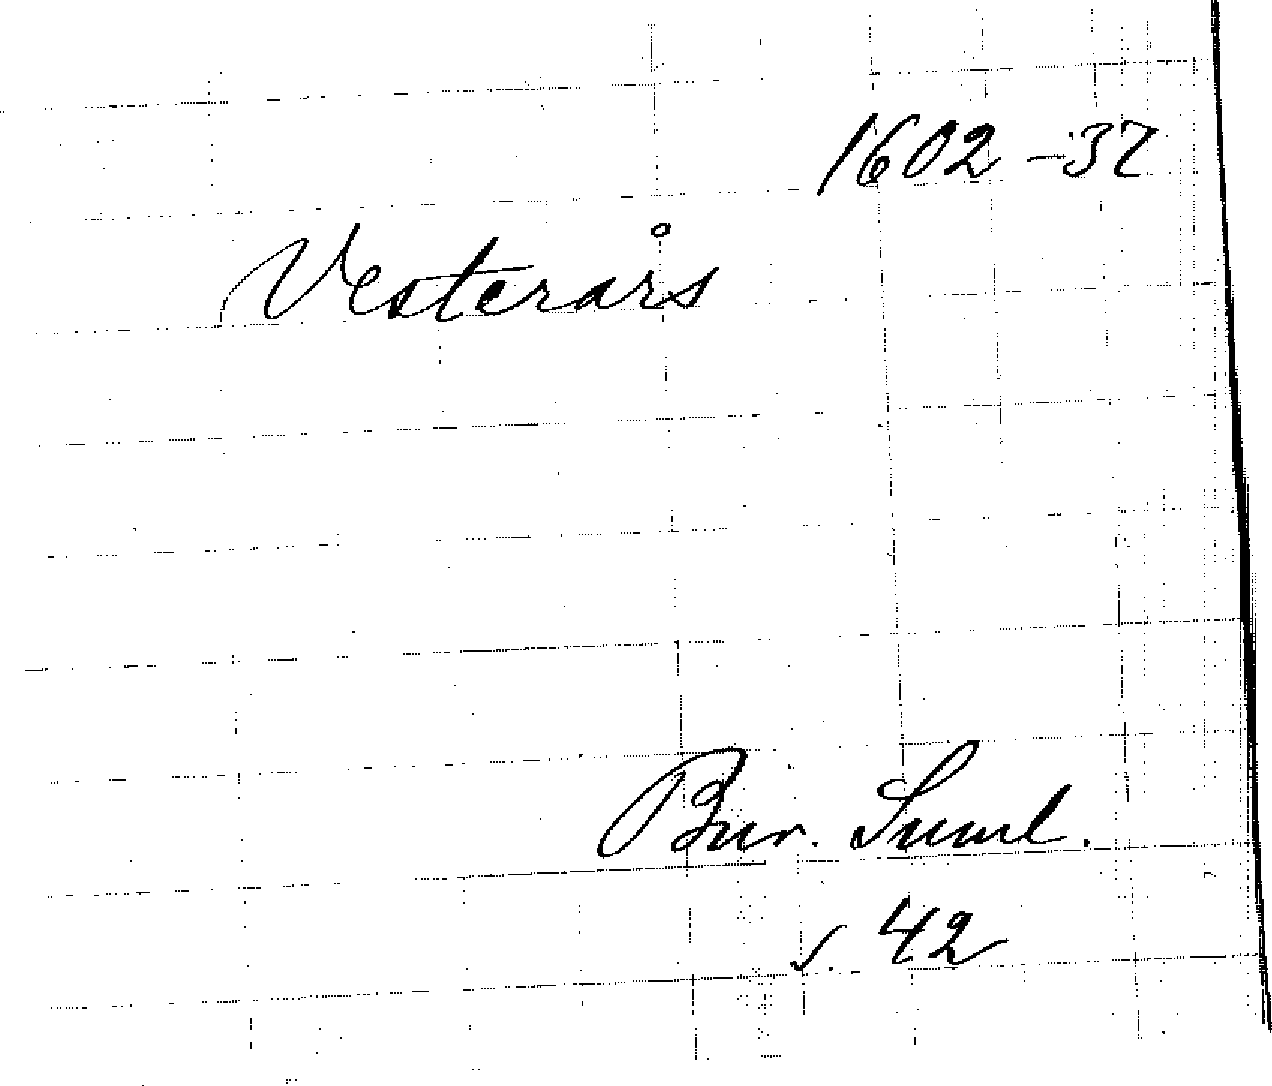 1602-37
Vesterårs
Bur. Suml.
s. 42